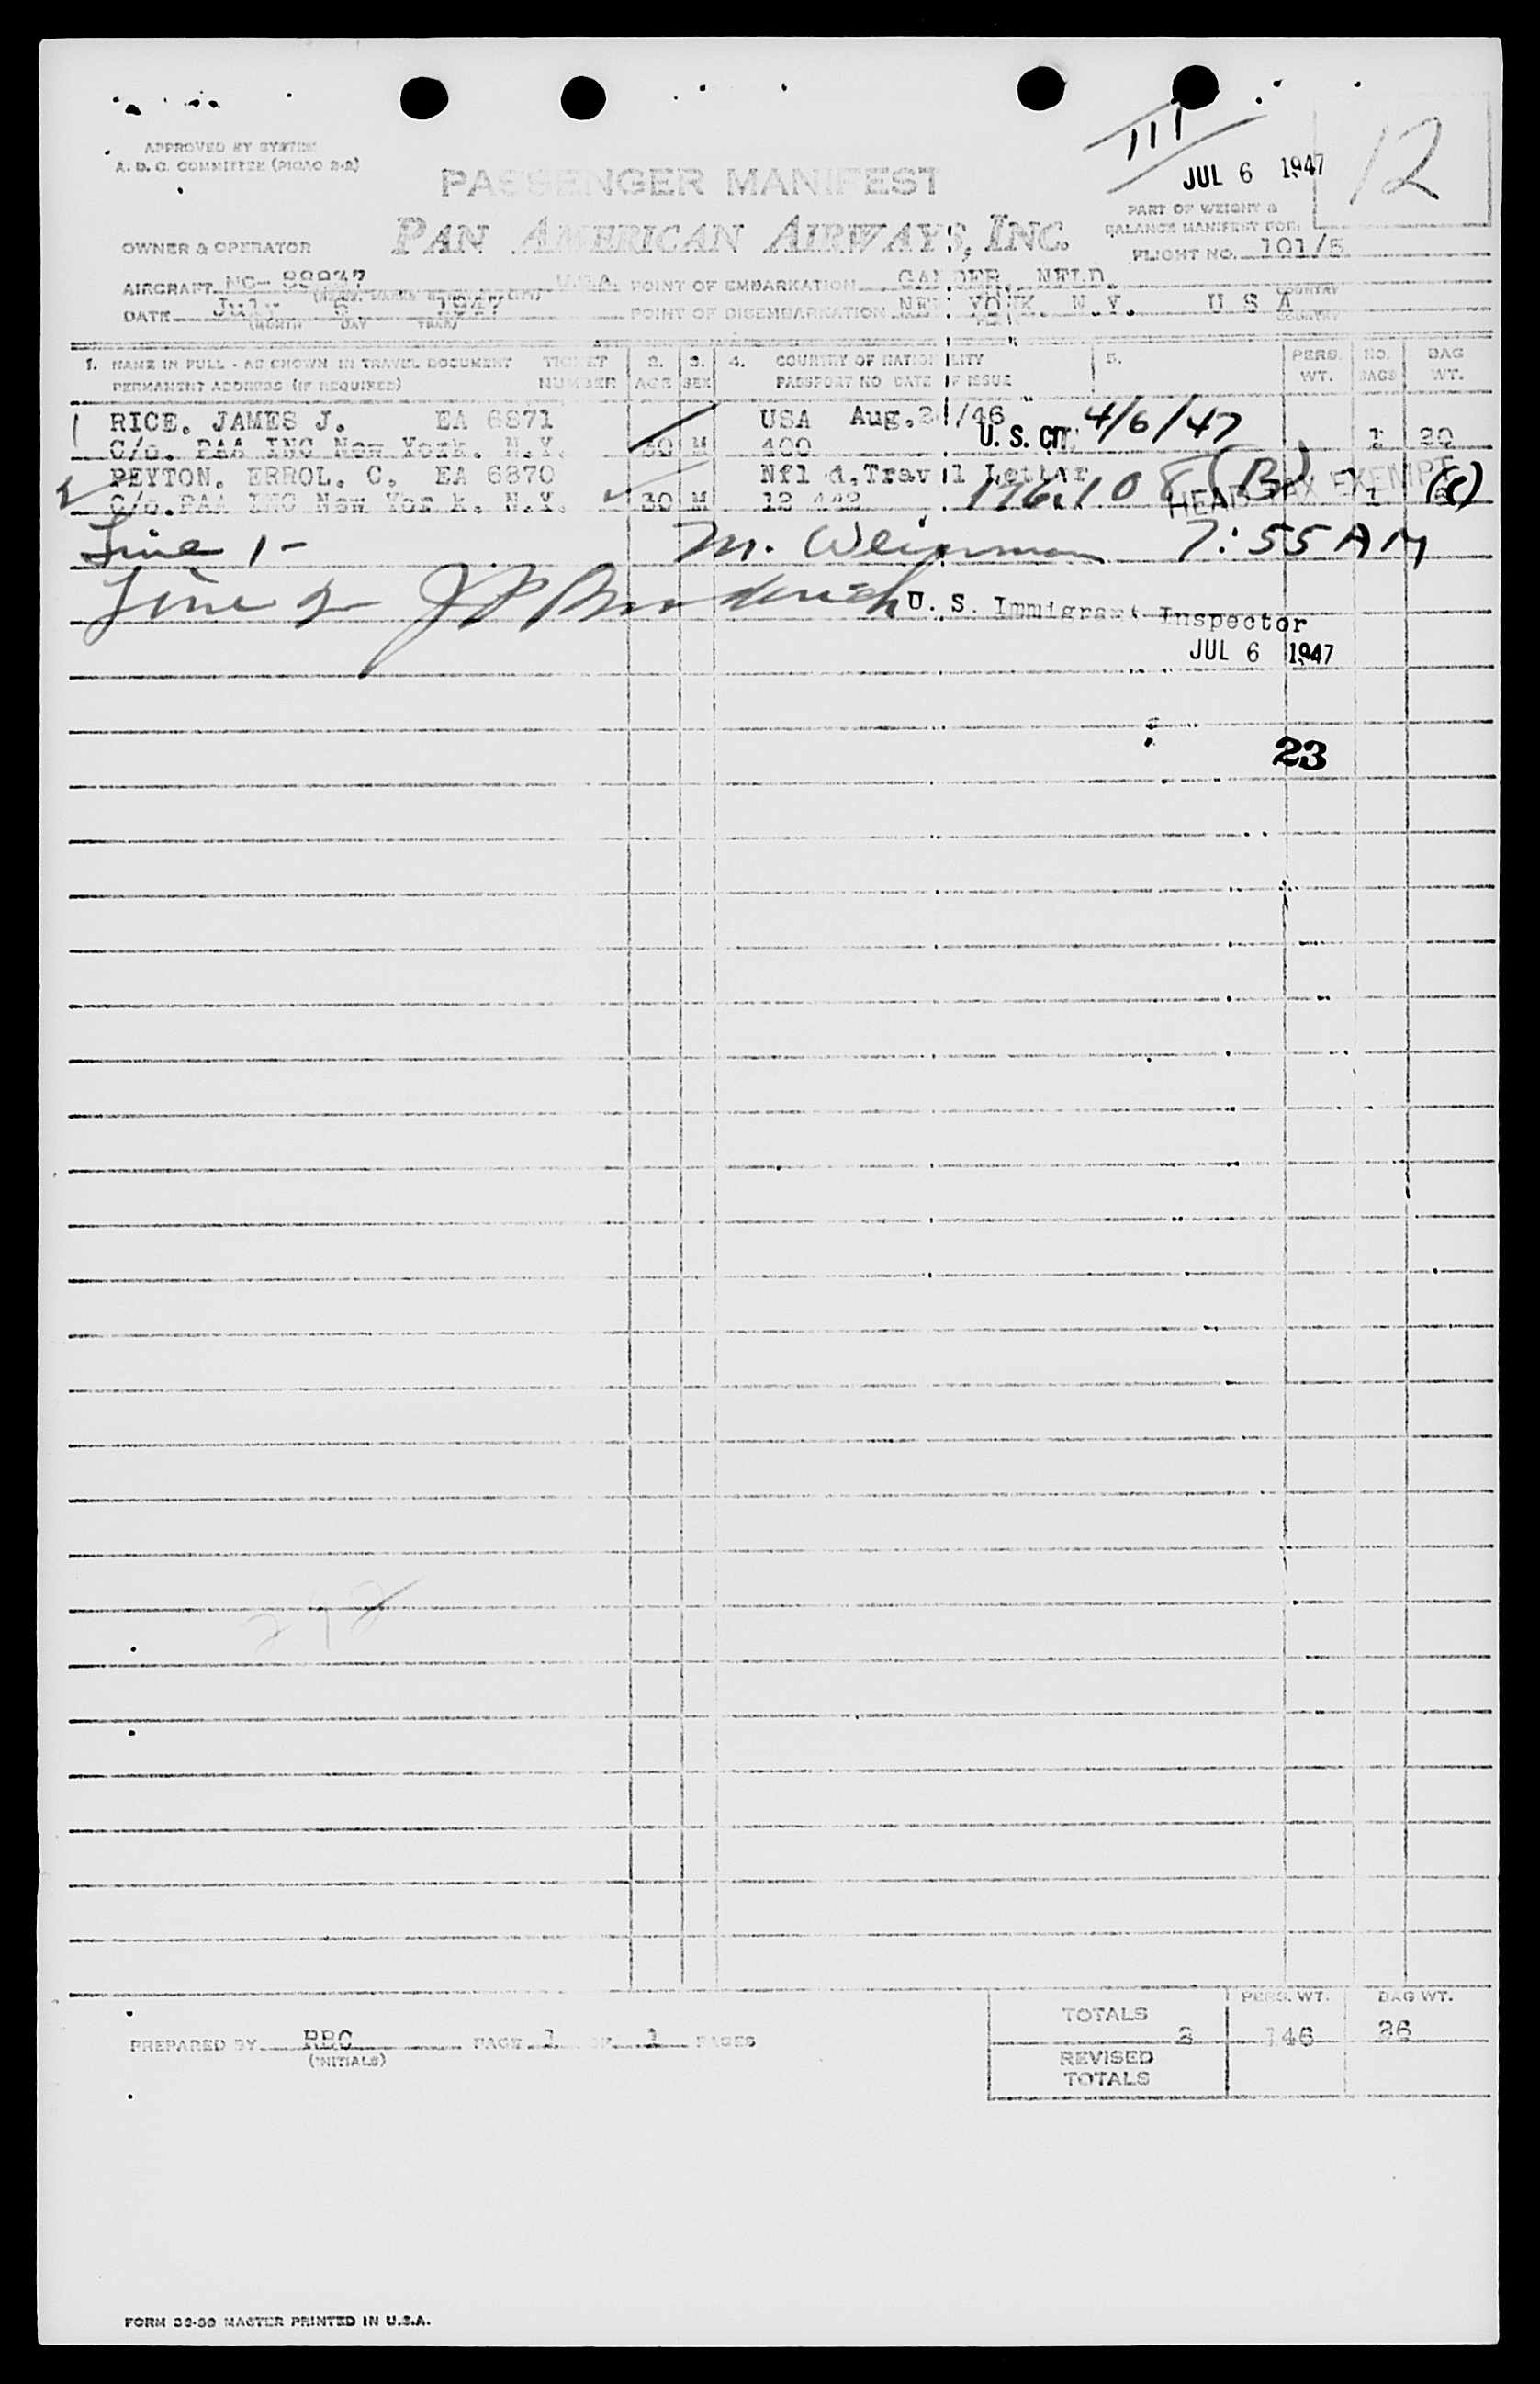 APPROVED BY SYSTEM
A. D. C. COMMITTEE (PICAO 2-2)
111
JUL 6 1947
12
PASSENGER MANIFEST
PAN AMERICAN AIRWAYS, INC.
PART OF WEIGHT &
BALANCE MANIFEST FOR:
OWNER & OPERATOR
FLIGHT NO. 101/5
AIRCRAFT NC- U.S.A. POINT OF EMBARKATION GANDER, NFLD. COUNTRY
DATE July 5 1947 POINT OF DISEMBARKATION NEW YORK. N.Y. U S A
(MONTH DAY YEAR) COUNTRY
1. NAME IN FULL - AS SHOWN IN TRAVEL DOCUMENT TICKET 2. 3. 4. COUNTRY OF NATIONALITY 5. PERS. NO. BAG
PERMANENT ADDRESS (IF REQUIRED) NUMBER AGE SEX PASSPORT NO DATE OF ISSUE WT. BAGS WT.
1 RICE. JAMES J. EA 6871 USA Aug. /46 4/6/47
C/o. PAA INC New York. N.Y. 30 M 400 U. S. CIT. 1 20
2 PEYTON. ERROL. C. EA 6870 Nfl d. Travel Letter 176.108(B) HEAD TAX EXEMPT
C/o. PAA INC New Yor k. N.Y. 30 M 1 6 (C)
Line 1- M. Weinman 7:55 AM
Line 2 J P Broderick U. S. Immigrant Inspector
JUL 6 1947
23
PERS. WT. BAG WT.
TOTALS 2 146 26
PREPARED BY RBC PAGE 1 OF 1 PAGES
(INITIALS)
REVISED
TOTALS
FORM MASTER PRINTED IN U.S.A.